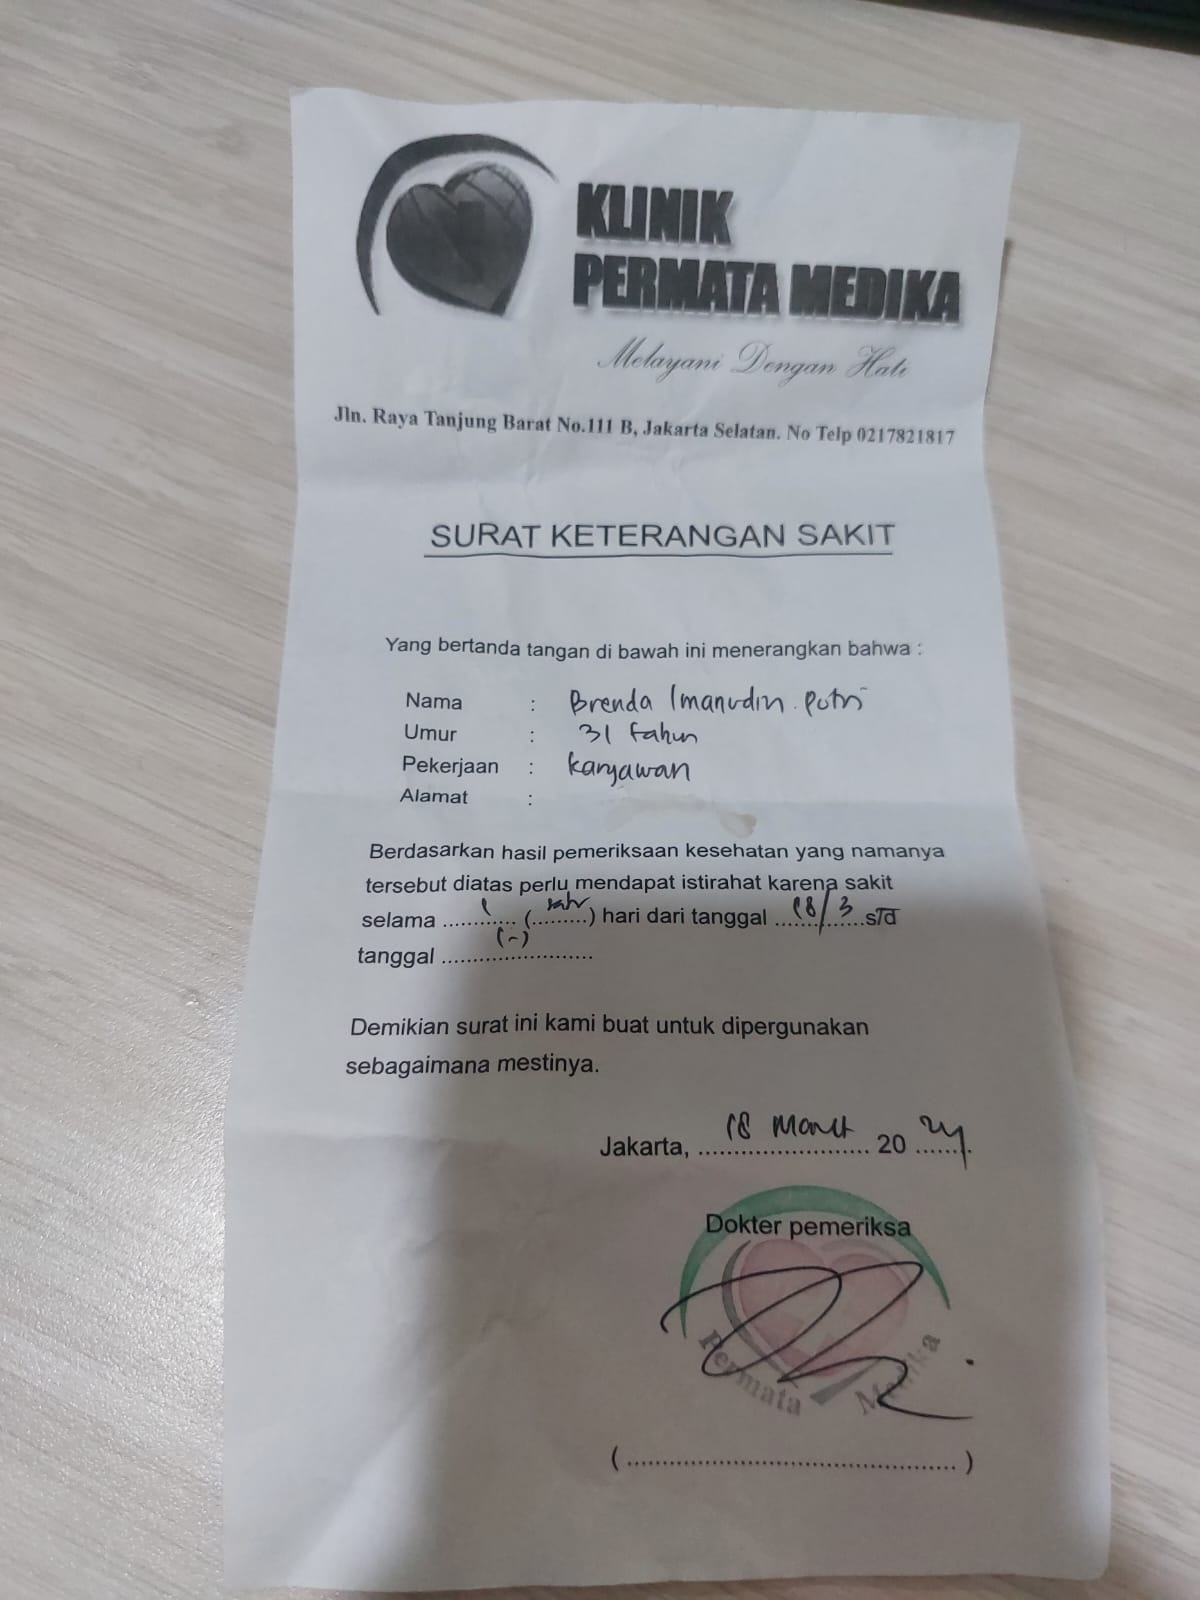 KLINIK
PERMATA MEDIKA
Melayani Dengan Hati
Jln. Raya Tanjung Barat No.111 B, Jakarta Selatan. No Telp 0217821817
SURAT KETERANGAN SAKIT
Yang bertanda tangan di bawah ini menerangkan bahwa :
Nama : Brenda Imanudin Putri
Umur : 31 tahun
Pekerjaan : Karyawan
Alamat :
Berdasarkan hasil pemeriksaan kesehatan yang namanya
tersebut diatas perlu mendapat istirahat karena sakit
selama ....1.... (..satu..) hari dari tanggal ..18/3..s/d
tanggal ..(-)..
Demikian surat ini kami buat untuk dipergunakan
sebagaimana mestinya.
Jakarta, 18 Maret 2024
Dokter pemeriksa
Permata Medika
(................................................)